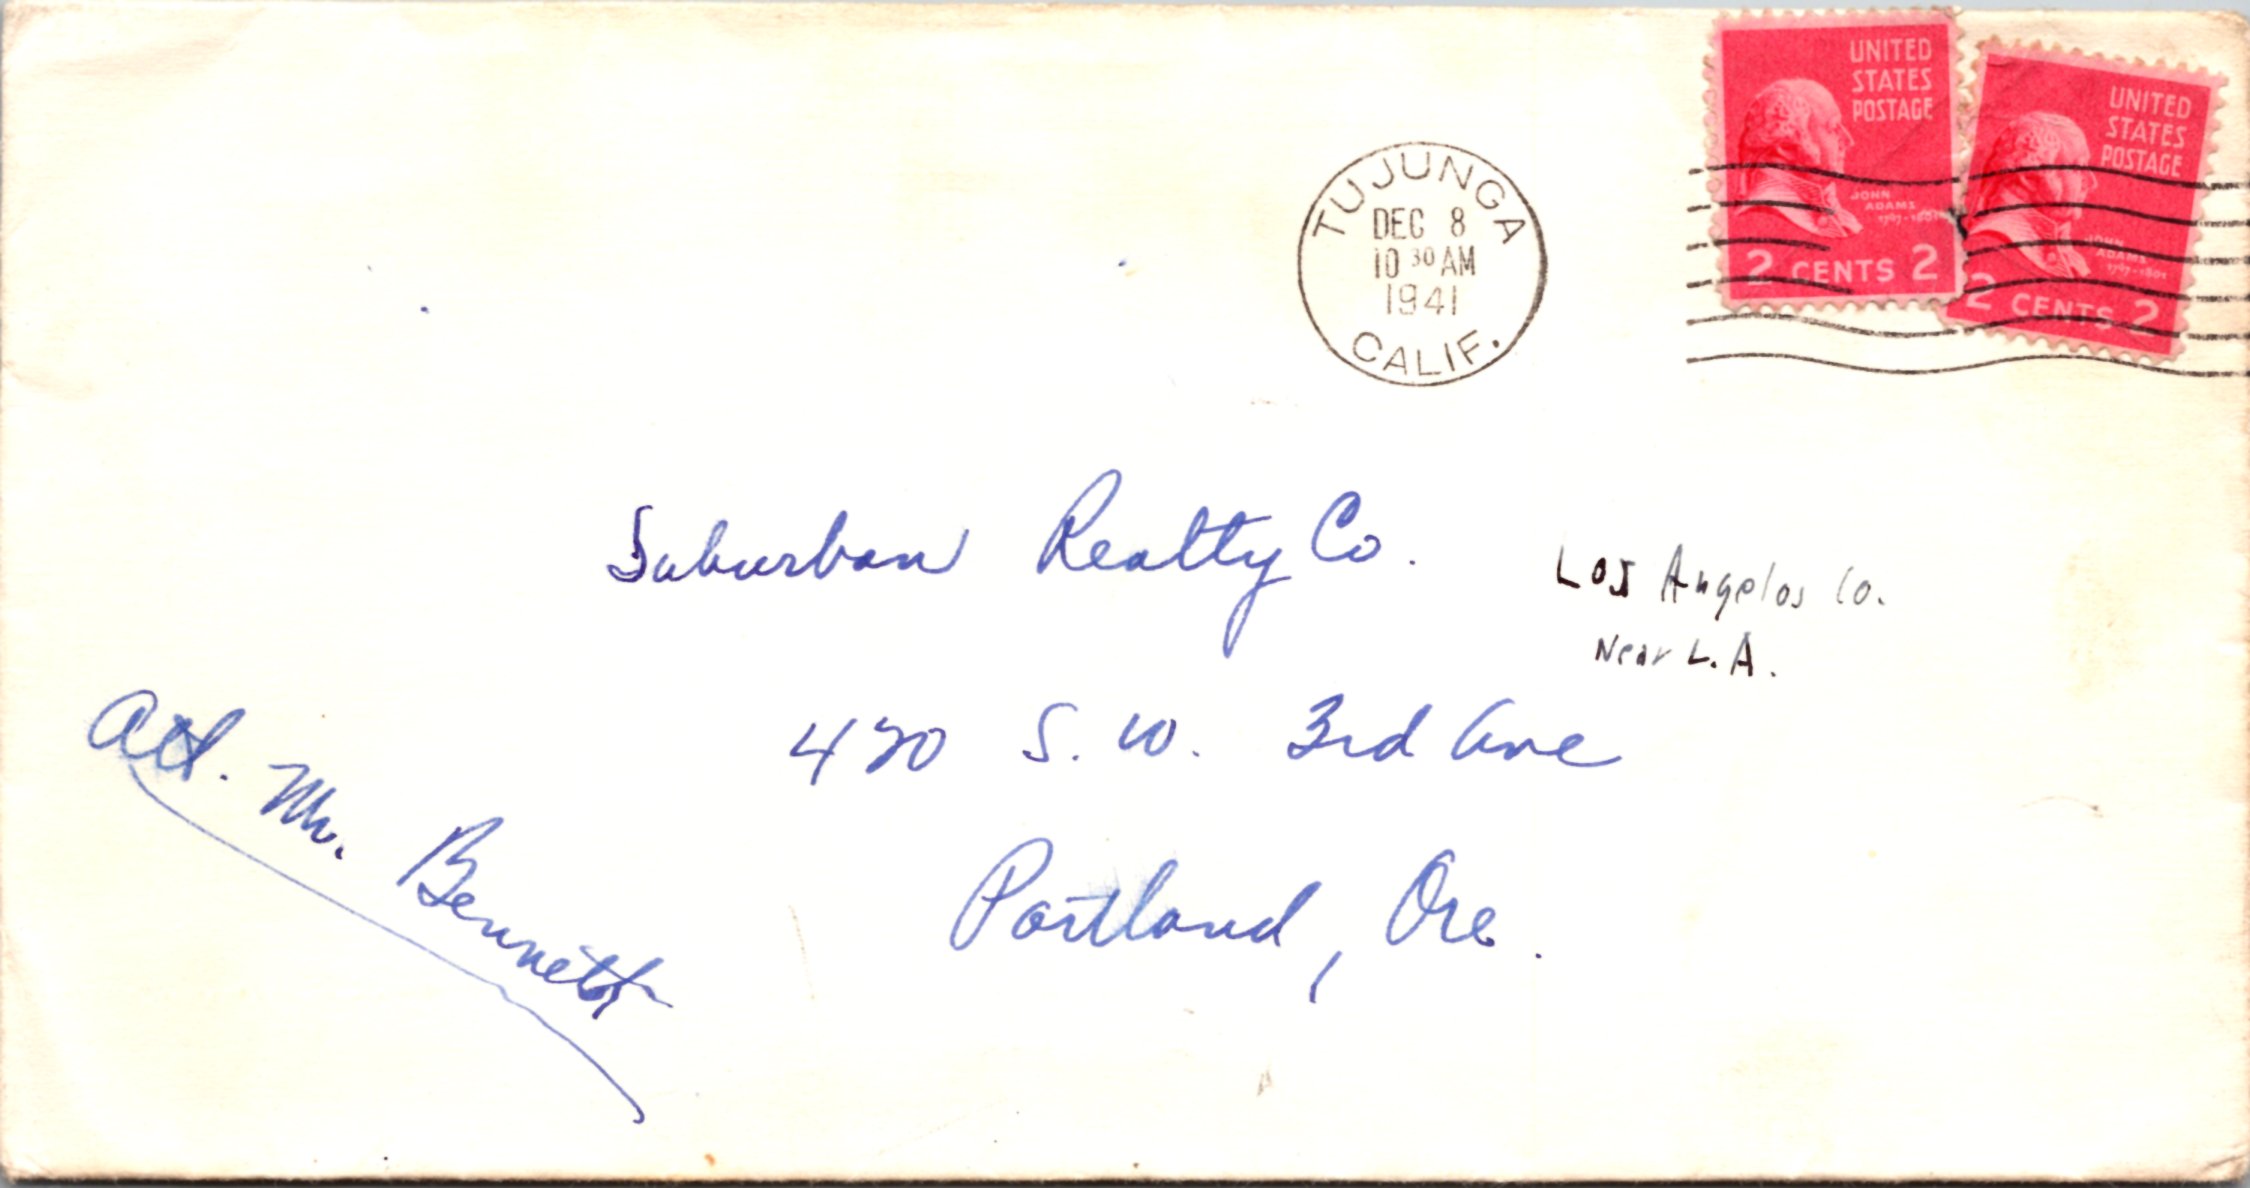 UNITED
STATES
POSTAGE
JOHN
ADAMS
1797-1801
2 CENTS 2
UNITED
STATES
POSTAGE
JOHN
ADAMS
1797-1801
2 CENTS 2
TUJUNGA
DEC 8
10 30 AM
1941
CALIF.
Suburban Realty Co.
Los Angelos Co.
Near L.A.
420 S. W. 3rd Ave
Portland, Ore.
Att. Mr. Bennett